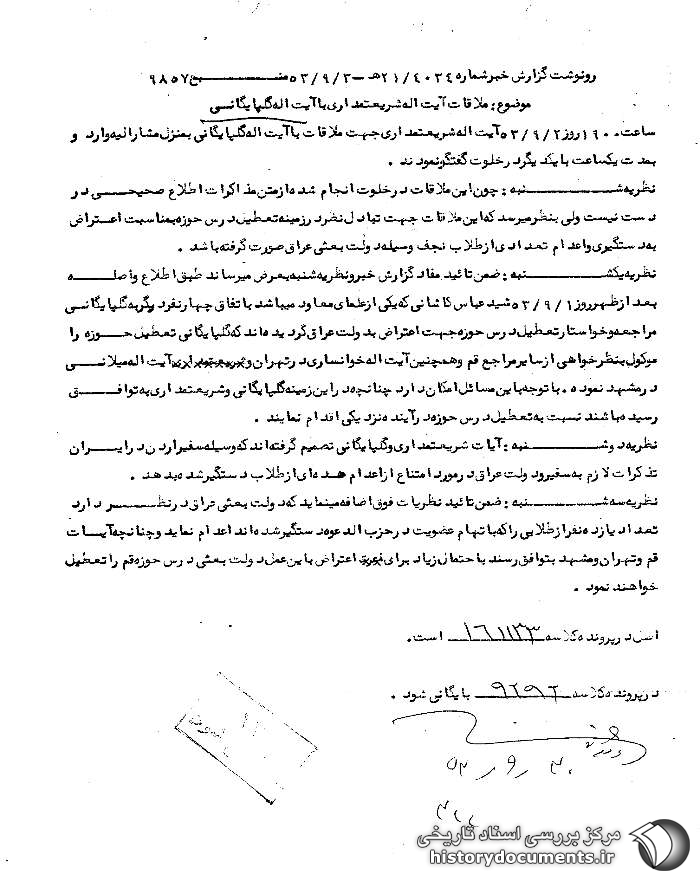 رونوشت گزارش خبر شماره ۲۱/۴۰۳۴هـ - ۵۳/۹/۳ منبع ۹۸۵۷
موضوع : ملاقات آیت اله شریعتمداری با آیت اله گلپایگانی
ساعت ۱۹۰۰ روز ۵۳/۹/۲ آیت اله شریعتمداری جهت ملاقات با آیت اله گلپایگانی بمنزل مشارالیه وارد و
بمدت یکساعت با یکدیگر در خلوت گفتگو نمودند .
نظریه شنبه : چون این ملاقات در خلوت انجام شده از متن مذاکرات اطلاع صحیحی در
دست نیست ولی بنظر میرسد که این ملاقات جهت تبادل نظر در زمینه تعطیل درس حوزه بمناسبت اعتراض
به دستگیری و اعدام تعدادی از طلاب نجف وسیله دولت بعثی عراق صورت گرفته باشد .
نظریه یکشنبه : ضمن تائید مفاد گزارش خبر و نظریه شنبه بعرض میرساند طبق اطلاع واصله
بعد از ظهر روز ۵۳/۹/۱ شید عباس کاشانی که یکی از علمای معاود میباشد باتفاق چهار نفر دیگر به گلپایگانی
مراجعه و خواستار تعطیل درس حوزه جهت اعتراض بدولت عراق گردیده اند که گلپایگانی تعطیل حوزه را
موکول بنظر خواهی از سایر مراجع قم و همچنین آیت اله خوانساری در تهران و آیت اله میلانی
در مشهد نموده . با توجه باین مسائل امکان دارد چنانچه در این زمینه گلپایگانی و شریعتمداری به توافق
رسیده باشند نسبت به تعطیل درس حوزه در آینده نزدیکی اقدام نمایند .
نظریه دوشنبه : آیات شریعتمداری و گلپایگانی تصمیم گرفته اند که وسیله سفیر اردن در ایران
تذکرات لازم به سفیر دولت عراق در مورد امتناع از اعدام عده ای از طلاب دستگیر شده بدهند .
نظریه سه شنبه : ضمن تائید نظریات فوق اضافه مینماید که دولت بعثی عراق در نظر دارد
تعداد یازده نفر از طلابی را که باتهام عضویت در حزب الدعوه دستگیر شده اند اعدام نماید و چنانچه آیات
قم و تهران و مشهد بتوافق رسند باحتمال زیاد برای اعتراض باین عمل دولت بعثی درس حوزه قم را تعطیل
خواهند نمود .
اصل در پرونده کلاسه ۱۶۱۱۳۳ است .
در پرونده کلاسه ۹۲۹۲ بایگانی شود .
۵۳/۹/۳۰
مرکز بررسی اسناد تاریخی
historydocuments.ir